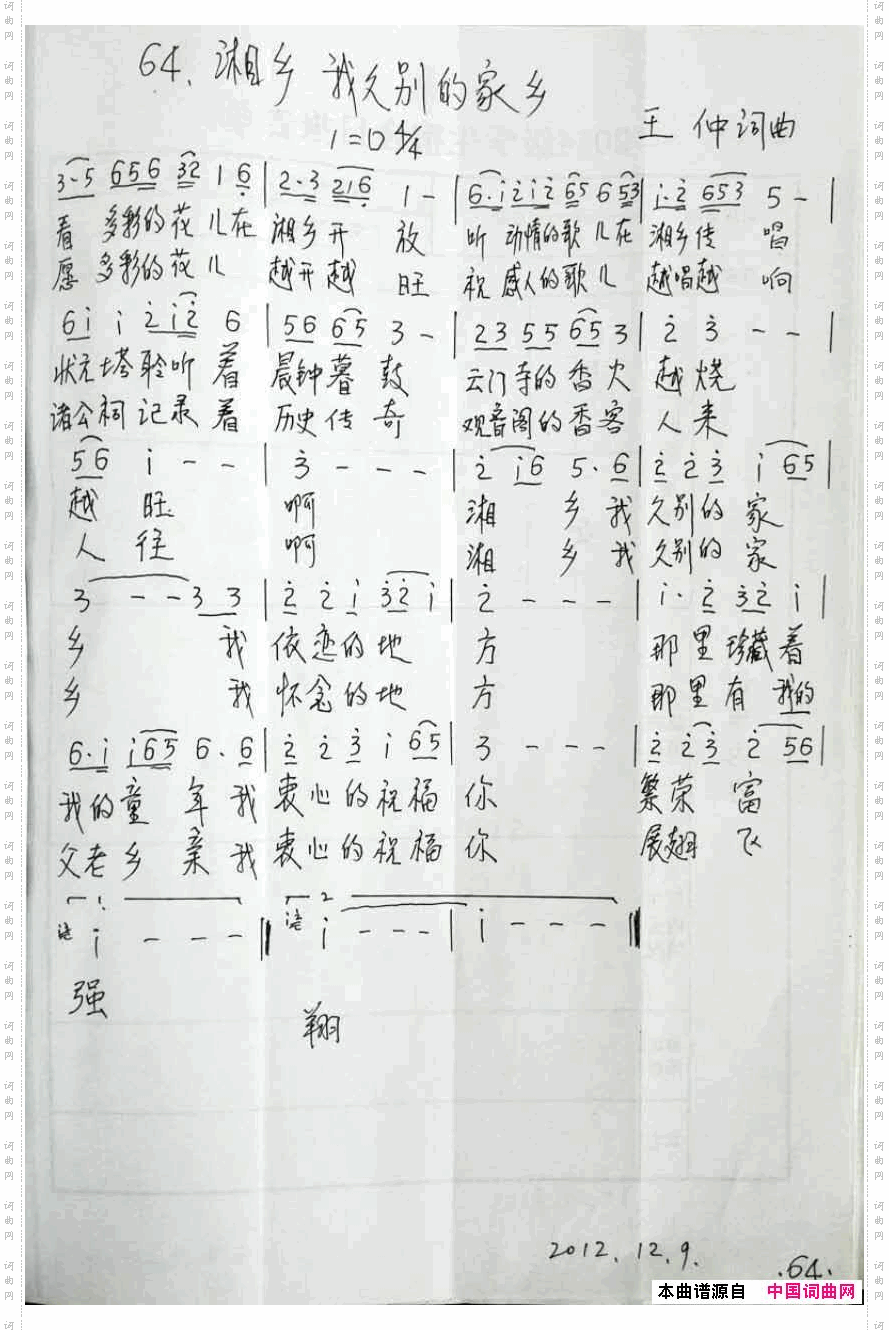 64. 湘乡 我久别的家乡
1=D 4/4
王 仲词曲
3·5 656 32 1 6 | 2·3 216 1 - | 6·i 2i2 65 6 53 | i·2 653 5 - |
看 多彩的花儿在 湘乡开 放 听 动情的歌儿在 湘乡传 唱
愿 多彩的花儿 越开越 旺 祝 感人的歌儿 越唱越 响
6i i 2i2 6 | 56 65 3 - | 23 55 65 3 | 2 3 - - |
状元塔聆听 着 晨钟暮 鼓 云门寺的香火 越烧
诸公祠记录着 历史传奇 观音阁的香客 人来
56 i - - | 3 - - - | 2 i6 5· 6 | 2 2 3 i 65 |
越 旺 啊 湘 乡 我 久别的 家
人 往 啊 湘 乡 我 久别的 家
3 - - 3 3 | 2 2 i 32 i | 2 - - - | i· 2 32 i |
乡 我 依恋的地 方 那里珍藏着
乡 我 怀念的地 方 那里有 我的
6·i i65 6·6 | 2 2 3 i 65 | 3 - - - | 2 23 2 56 |
我的童 年 我 衷心的祝福 你 繁荣 富
父老乡 亲 我 衷心的祝福 你 展翅 飞
1. 2.
i - - - i - - - | i - - -
强
翔
2012.12.9.
·64·
本曲谱源自 中国词曲网